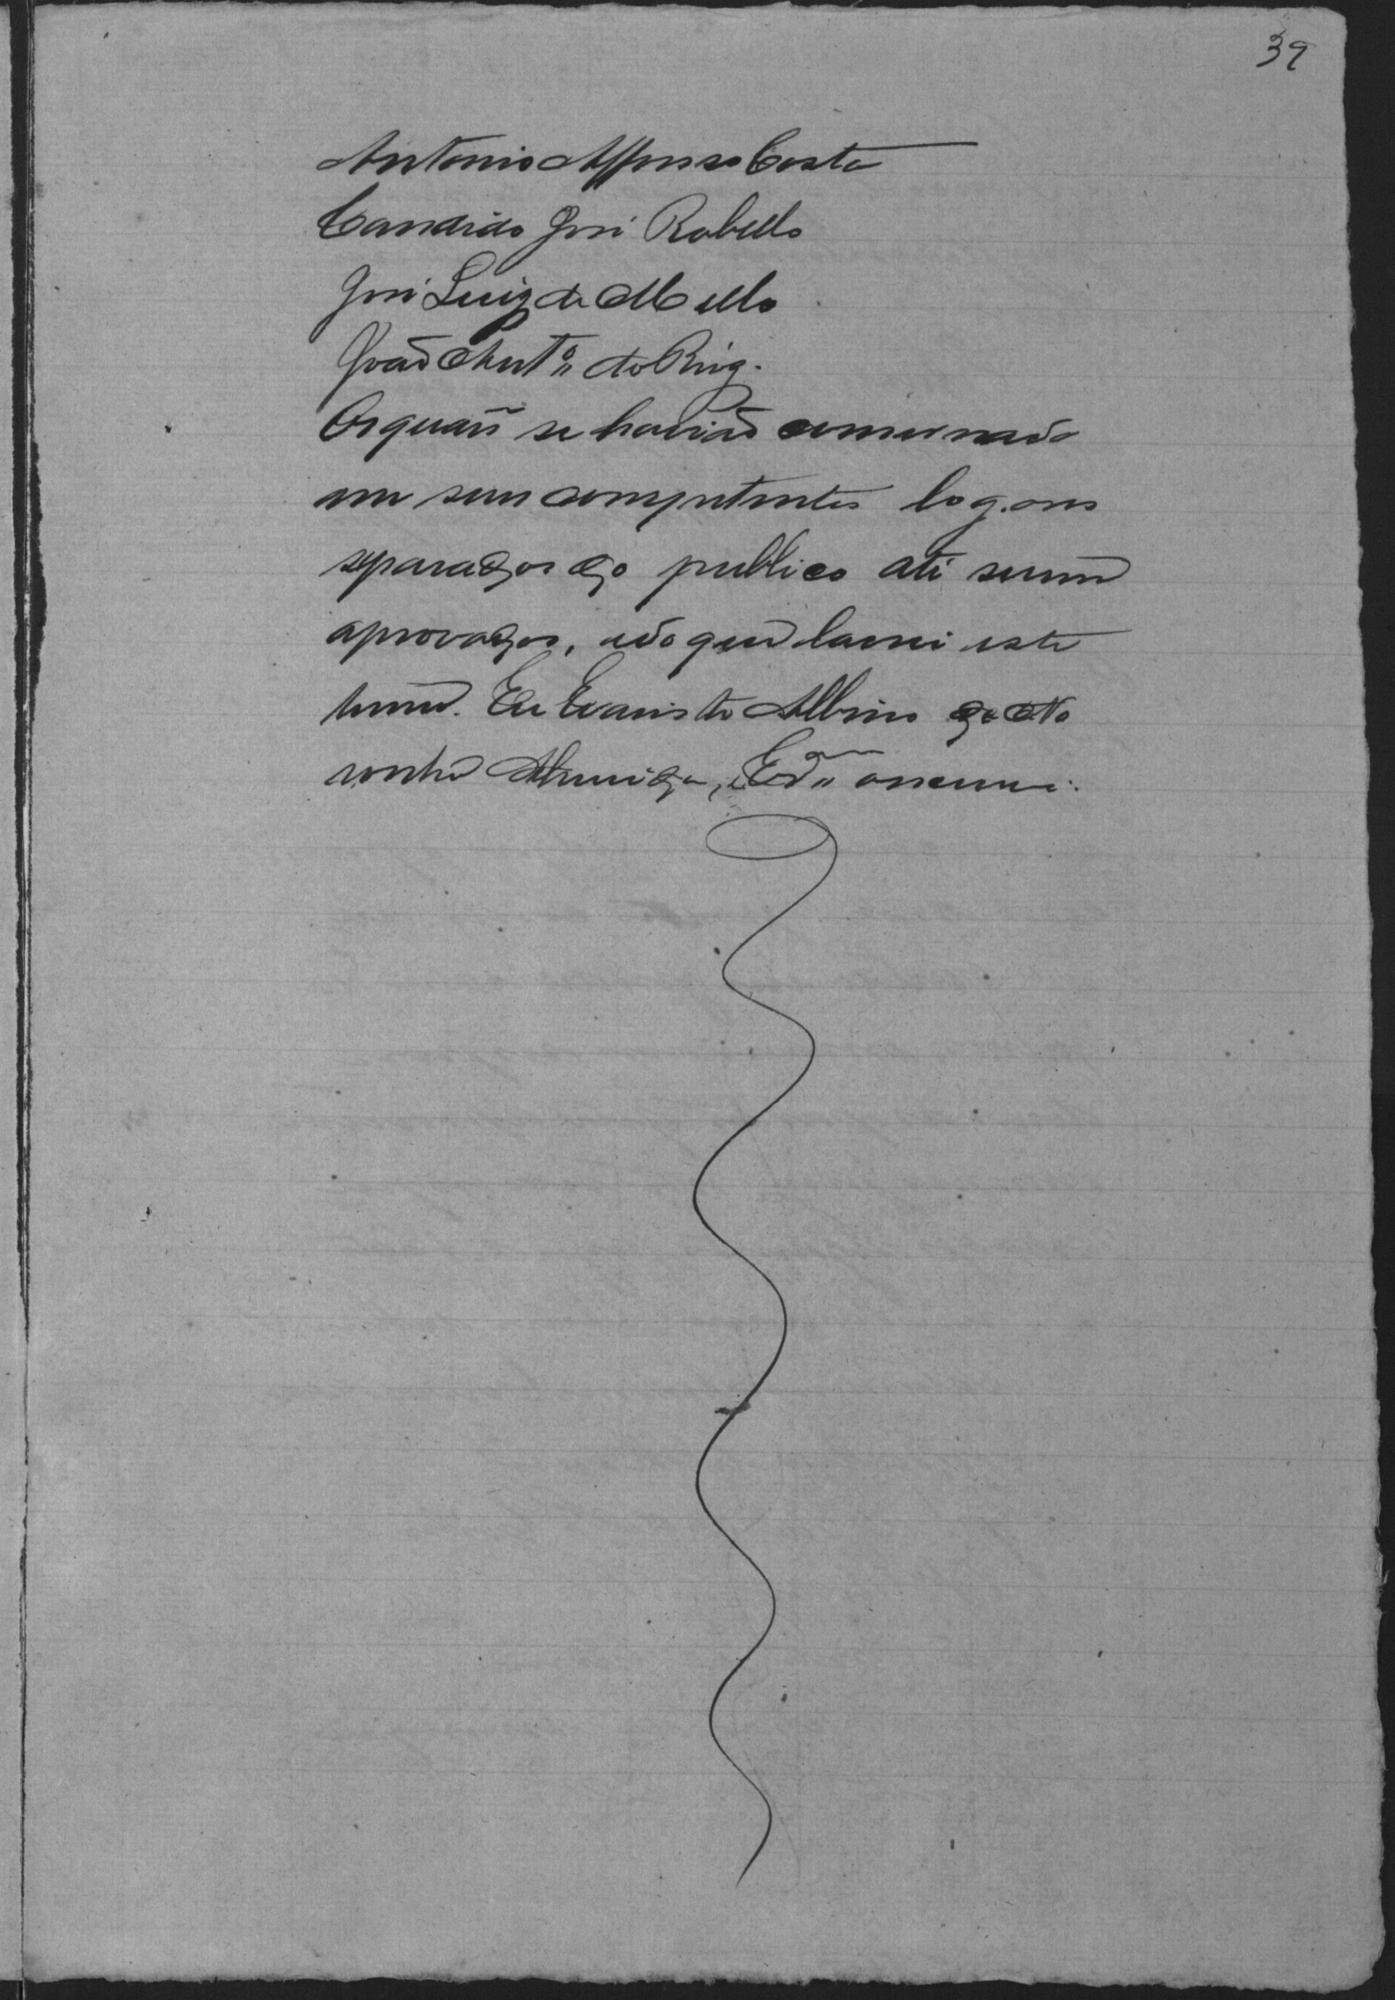 39
Antonio Affonso Costa
Candido José Rabello
José Luiz de Mello
João Ant.º do Reiz.
Os quais se havião conservado
em seus competentes log.ares
separados do publico até serem
aprovados, e do que lavrei este
termo. Eu Evaristo Albino de No
ronha Almeida, Es.ᵃᵐ escrevi.